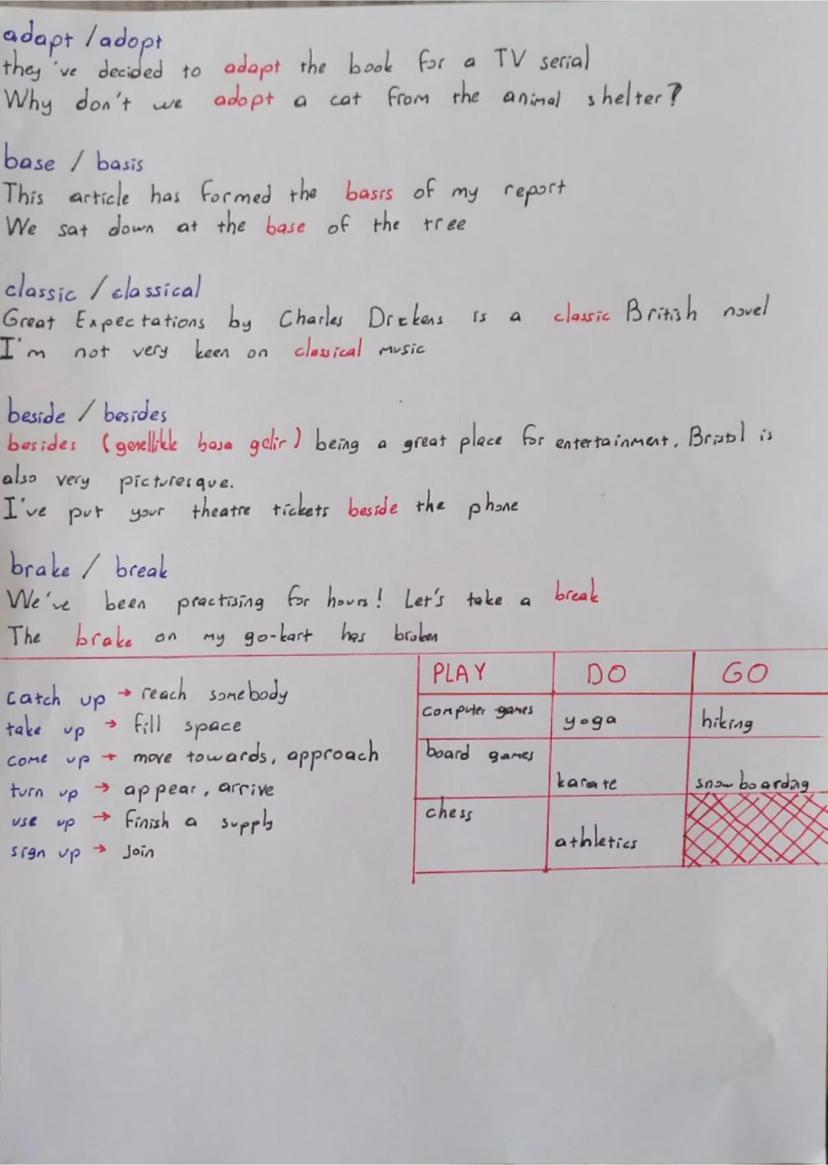 adapt / adopt
they've decided to adapt the book for a TV serial
Why don't we adopt a cat from the animal shelter?
base / basis
This article has formed the basis of my report
We sat down at the base of the tree
classic / classical
Great Expectations by Charles Dickens is a classic British novel
I'm not very keen on classical music
beside / besides
besides (genellikle başa gelir) being a great place for entertainment, Bristol is
also very picturesque.
I've put your theatre tickets beside the phone
brake / break
We've been practising for hours! Let's take a break
The brake on my go-kart has broken
catch up → reach somebody
take up → fill space
come up → move towards, approach
turn up → appear, arrive
use up → finish a supply
sign up → join
PLAY DO GO
computer games yoga hiking
board games karate snowboarding
chess athletics